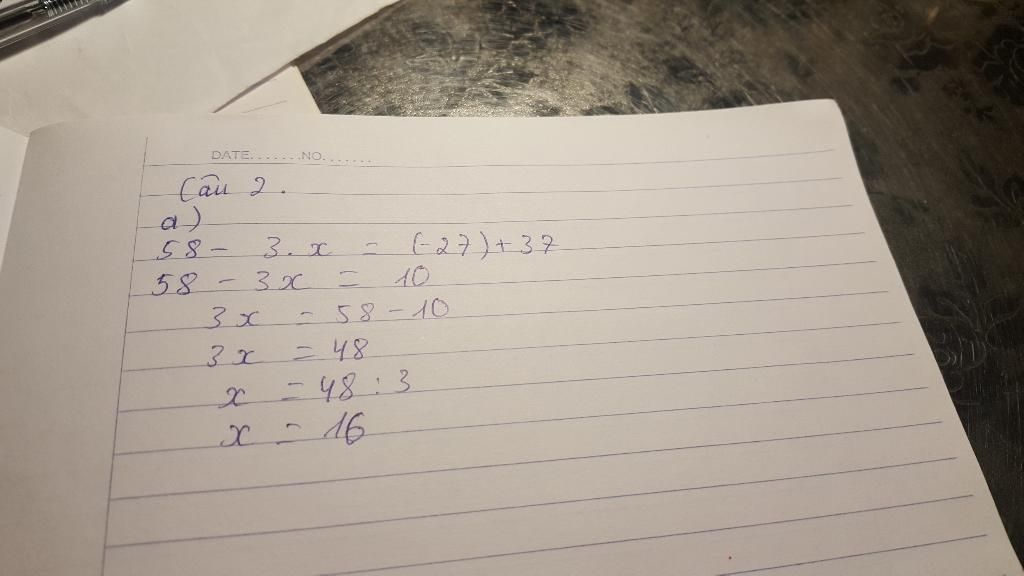 DATE.......NO.......
Câu 2.
a)
58 - 3.x = (-27)+37
58 - 3x = 10
3x = 58 - 10
3x = 48
x = 48 : 3
x = 16